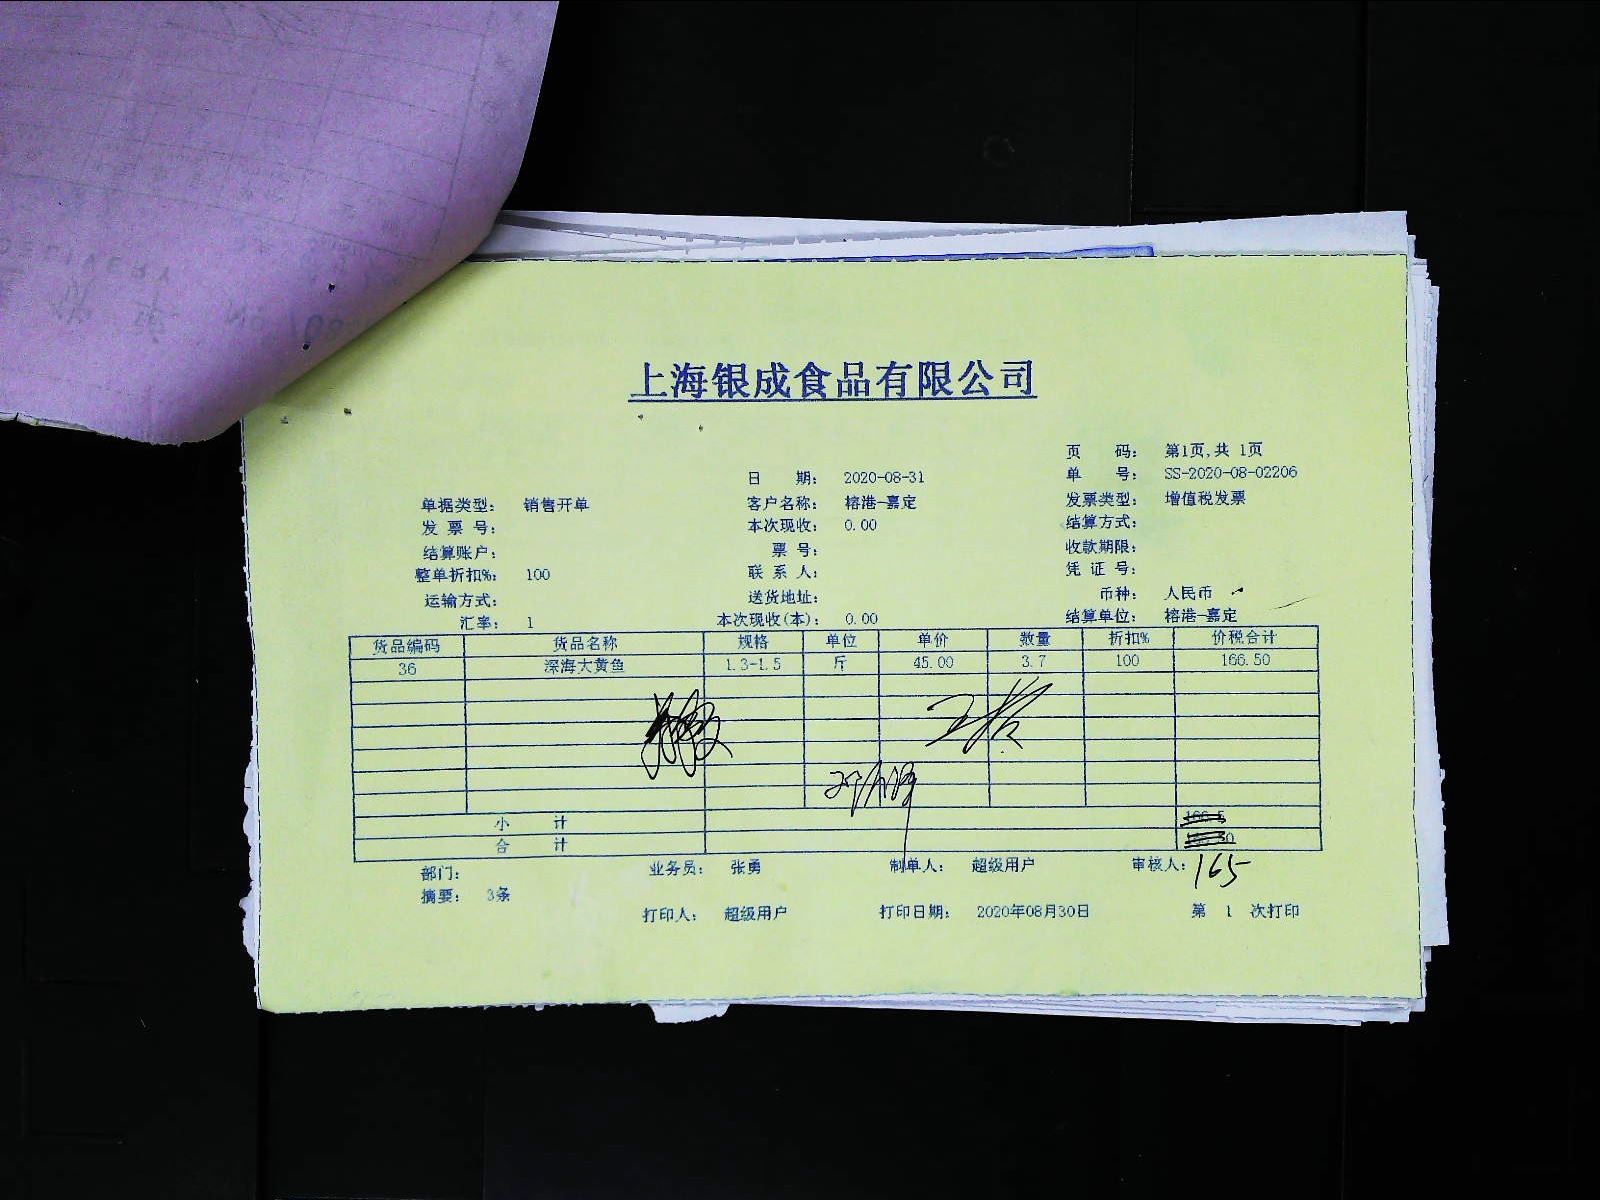 上海银成食品有限公司
页 码: 第1页,共 1页
日 期: 2020-08-31 单 号: SS-2020-08-02206
单据类型: 销售开单 客户名称: 榕港-嘉定 发票类型: 增值税发票
发 票 号: 本次现收: 0.00 结算方式:
结算账户: 票 号: 收款期限:
整单折扣%: 100 联 系 人: 凭 证 号:
运输方式: 送货地址: 币种: 人民币
汇率: 1 本次现收(本): 0.00 结算单位: 榕港-嘉定
货品编码 货品名称 规格 单位 单价 数量 折扣% 价税合计
36 深海大黄鱼 1.3-1.5 斤 45.00 3.7 100 166.50
小 计
合 计
部门: 业务员: 张勇 制单人: 超级用户 审核人: 165
摘要: 3条
打印人: 超级用户 打印日期: 2020年08月30日 第 1 次打印